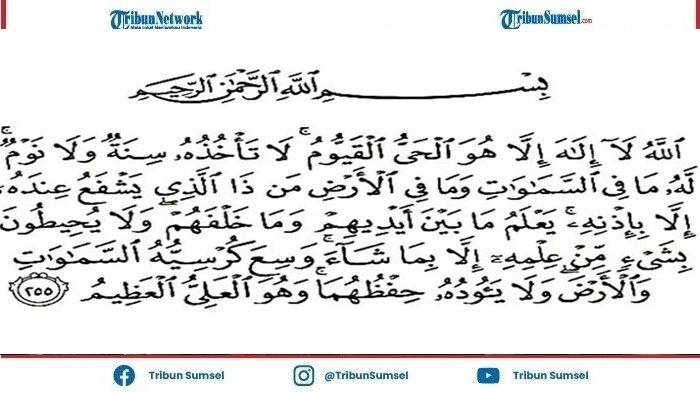 TribunNetwork
Mata Lokal Menjangkau Indonesia
TribunSumsel.com
بِسْمِ ٱللَّهِ ٱلرَّحْمَٰنِ ٱلرَّحِيمِ
ٱللَّهُ لَآ إِلَٰهَ إِلَّا هُوَ ٱلْحَىُّ ٱلْقَيُّومُ ۚ لَا تَأْخُذُهُۥ سِنَةٌ وَلَا نَوْمٌ ۚ
لَّهُۥ مَا فِى ٱلسَّمَٰوَٰتِ وَمَا فِى ٱلْأَرْضِ ۗ مَن ذَا ٱلَّذِى يَشْفَعُ عِندَهُۥٓ
إِلَّا بِإِذْنِهِۦ ۚ يَعْلَمُ مَا بَيْنَ أَيْدِيهِمْ وَمَا خَلْفَهُمْ ۖ وَلَا يُحِيطُونَ
بِشَىْءٍ مِّنْ عِلْمِهِۦٓ إِلَّا بِمَا شَآءَ ۚ وَسِعَ كُرْسِيُّهُ ٱلسَّمَٰوَٰتِ
وَٱلْأَرْضَ ۖ وَلَا يَـُٔودُهُۥ حِفْظُهُمَا ۚ وَهُوَ ٱلْعَلِىُّ ٱلْعَظِيمُ ٢٥٥
Tribun Sumsel
@TribunSumsel
Tribun Sumsel